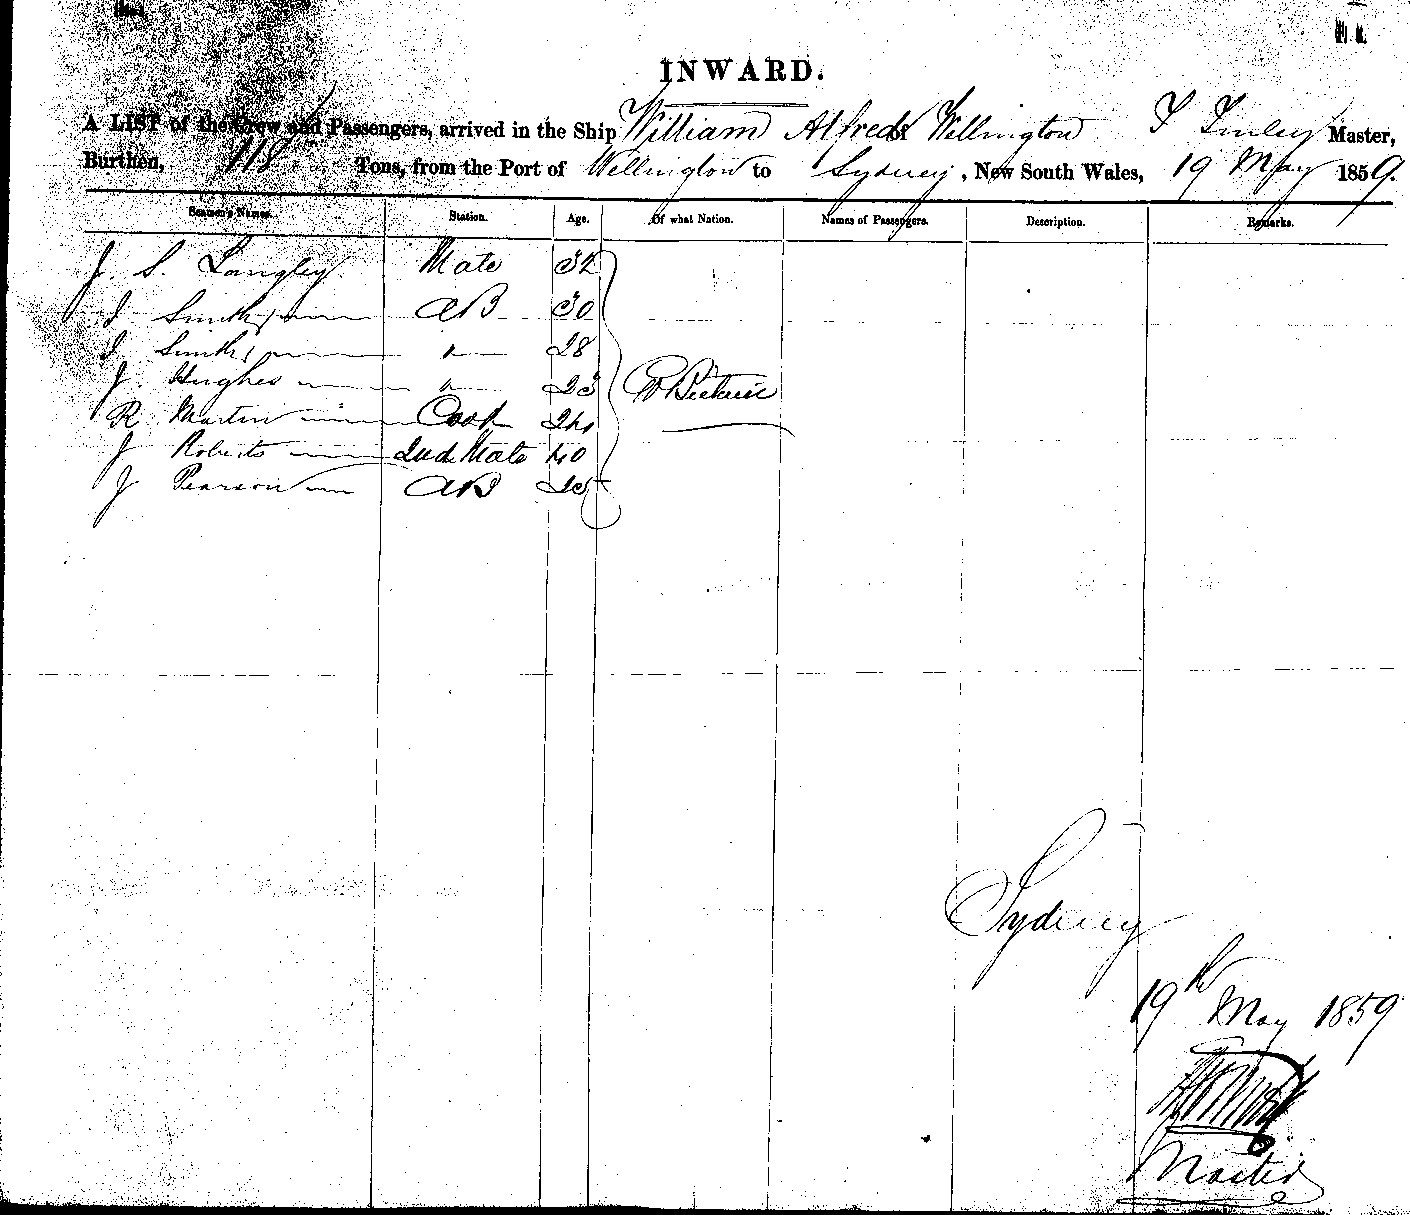 INWARD.
A LIST of the Crew and Passengers, arrived in the Ship William Alfred of Wellington T Tinley Master,
Burthen, 118 Tons, from the Port of Wellington to Sydney, New South Wales, 19 May 1859.
Seamen's Names. Station. Age. Of what Nation. Names of Passengers. Description. Remarks.
J. S. Langley Mate 32
J Smith AB 30
J Smith " 28
J. Hughes " 23
R Martin Cook 24
J Roberts 2nd Mate 40
J Pearson AB
Sydney
19th May 1859
Master